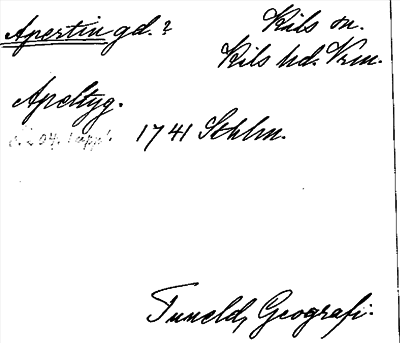 Apertin gd.? Kils sn.
Kils hd. Vrm.
Apeltyg.
1741 Sthlm.
Tuneld, Geografi.